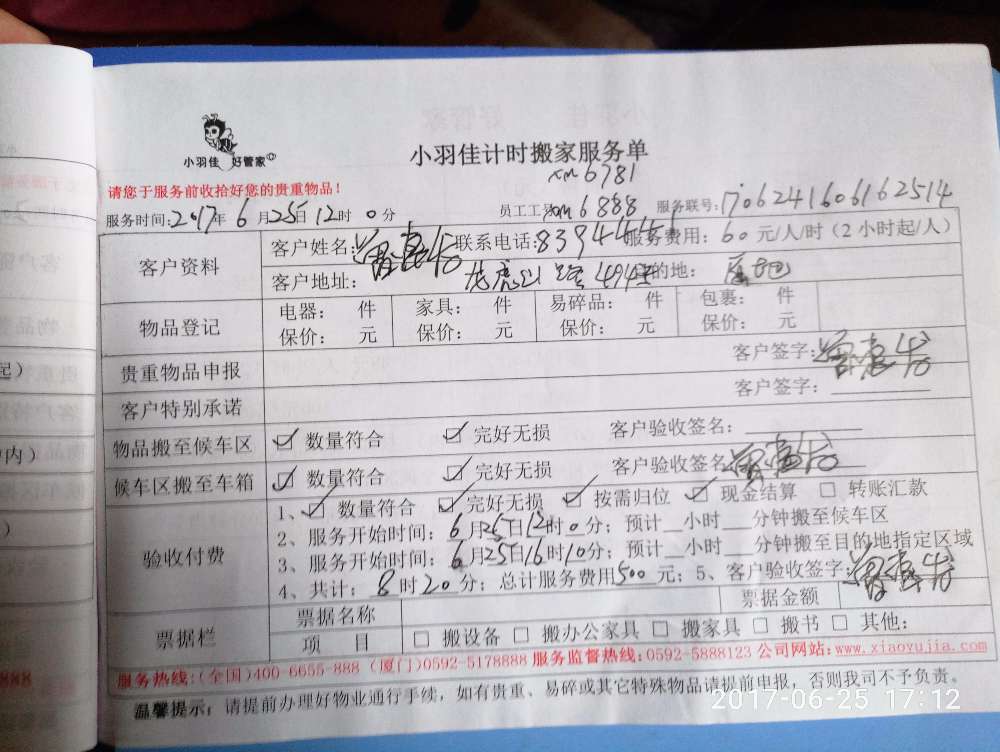 小羽佳 好管家
小羽佳计时搬家服务单
xm6781
请您于服务前收拾好您的贵重物品！
服务时间:2017年 6月25日12时0分 员工工号:xm6888 服务联号:170624160616 2514
客户资料
客户姓名: 联系电话:8394441 服务费用: 60元/人/时（2小时起/人）
客户地址: 龙虎山路494号 目的地:
物品登记
电器: 件 家具: 件 易碎品: 件 包裹: 件
保价: 元 保价: 元 保价: 元 保价: 元
贵重物品申报 客户签字:
客户特别承诺 客户签字:
物品搬至候车区 ☑ 数量符合 ☑ 完好无损 客户验收签名:
候车区搬至车箱 ☑ 数量符合 ☑ 完好无损 客户验收签名
验收付费
1、☑ 数量符合 ☑ 完好无损 ☑ 按需归位 ☑ 现金结算 □ 转账汇款
2、服务开始时间: 6月25日12时0分; 预计__小时___分钟搬至候车区
3、服务开始时间: 6月25日16时10分; 预计__小时___分钟搬至目的地指定区域
4、共计: 8时20分; 总计服务费用500元; 5、客户验收签字:
票据栏
票据名称 票据金额
项 目 □ 搬设备 □ 搬办公家具 □ 搬家具 □ 搬书 □ 其他:
服务热线:(全国)400-6655-888 (厦门)0592-5178888 服务监督热线:0592-5888123 公司网站:www.xiaoyujia.com
温馨提示: 请提前办理好物业通行手续，如有贵重、易碎或其它特殊物品请提前申报，否则我司不予负责。
2017-06-25 17:12